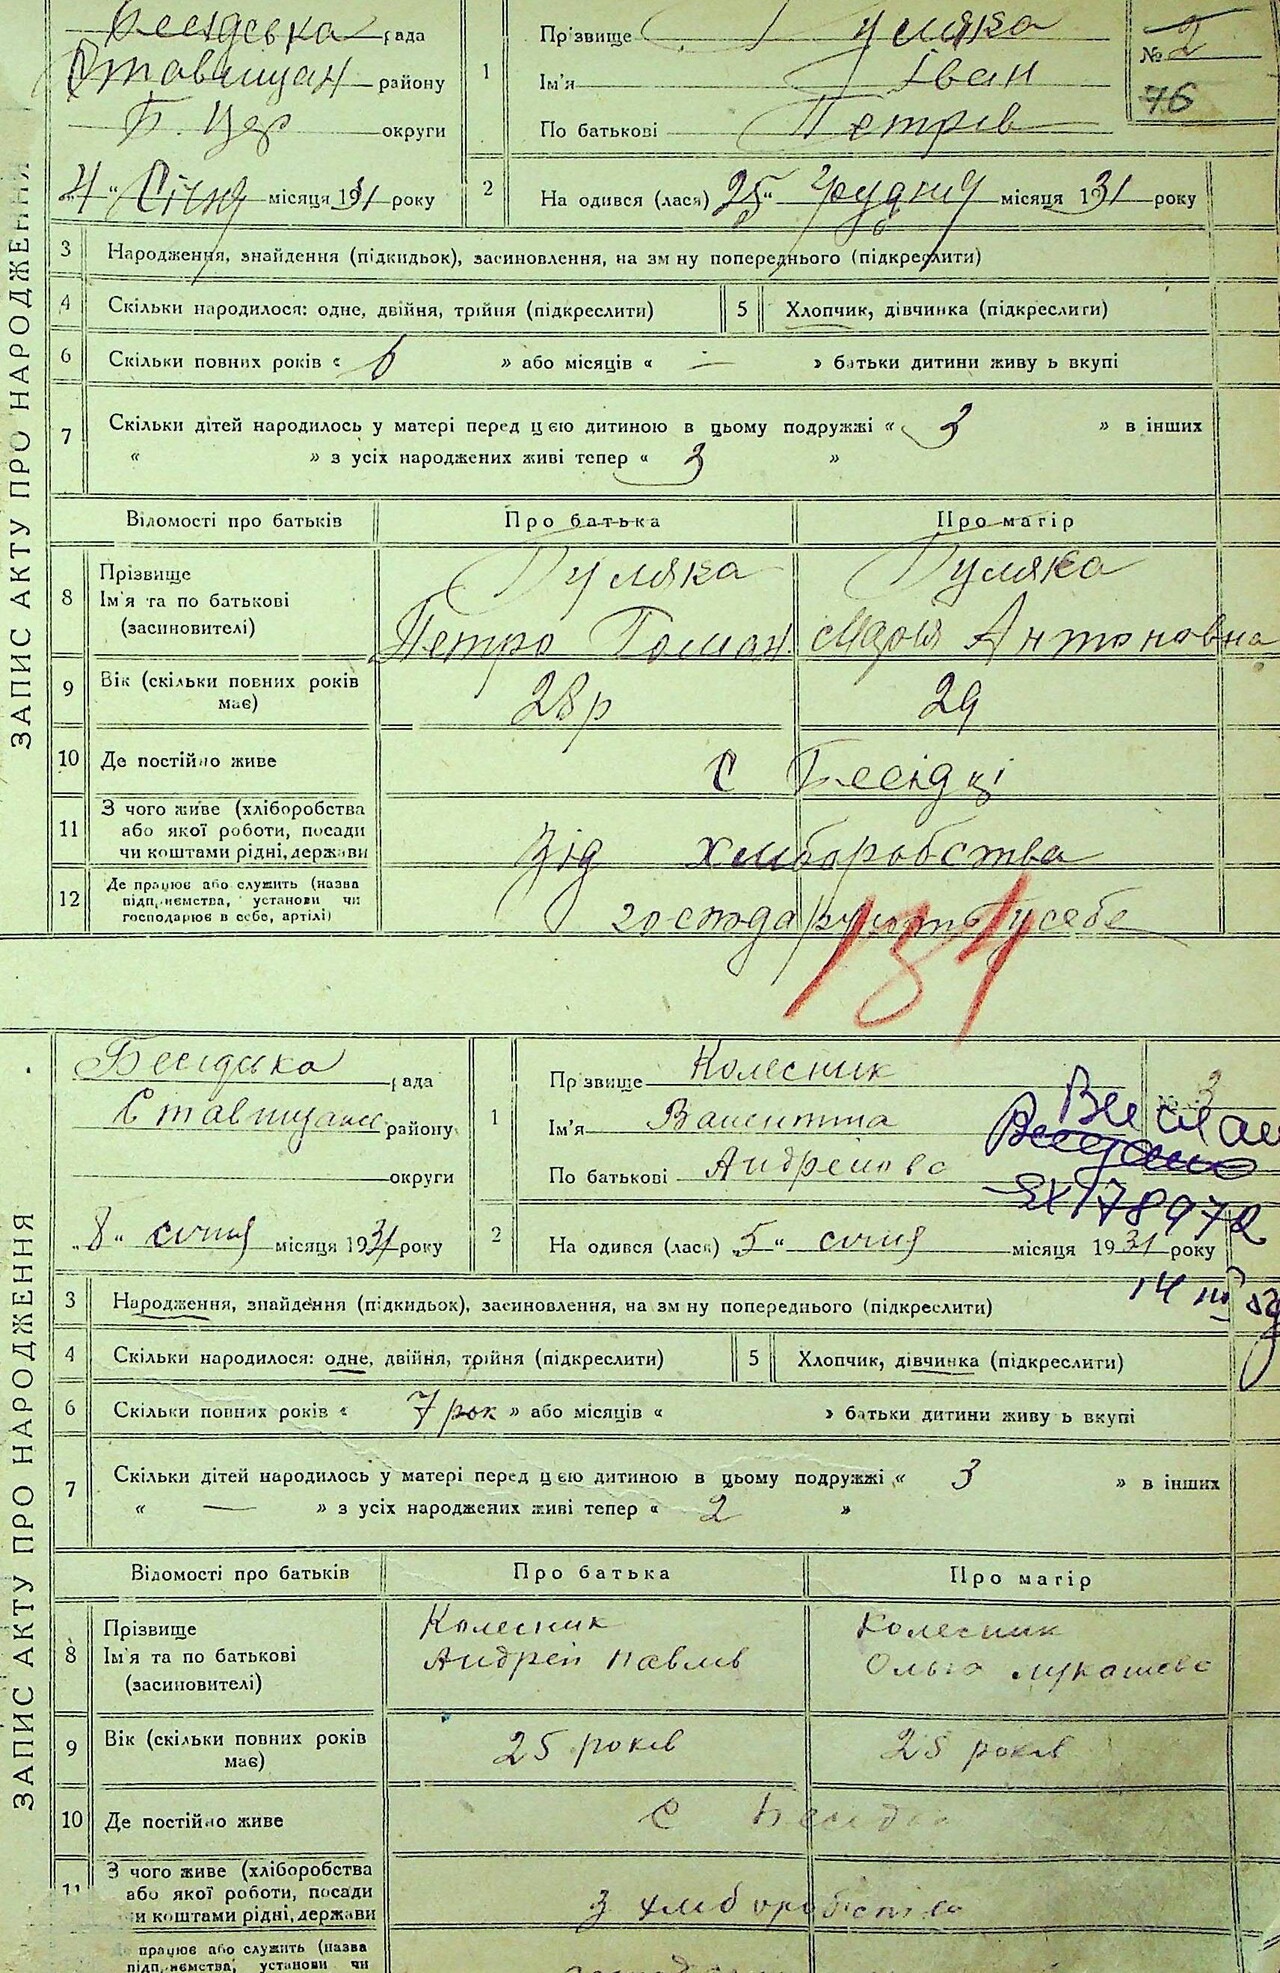 Бесідська рада
Ставищан району
Б. Цер округи
"4" Січня місяця 1931 року
1
Пр звище Гуляка
Ім'я Іван
По батькові Петрів
№ 2
76
2
На одився (лася) "25" Грудня місяця 1931 року
ЗАПИС АКТУ ПРО НАРОДЖЕННЯ
3 Народження, знайдення (підкидьок), засиновлення, на зм ну попереднього (підкреслити)
4 Скільки народилося: одне, двійня, трійня (підкреслити) 5 Хлопчик, дівчинка (підкреслити)
6 Скільки повних років « 6 » або місяців « — » батьки дитини живу ь вкупі
7 Скільки дітей народилось у матері перед цією дитиною в цьому подружжі « 3 » в інших
« » з усіх народжених живі тепер « 3 »
Відомості про батьків Про батька Про матір
8 Прізвище Гуляка Гуляка
Ім'я та по батькові
(засиновителі) Петро Роман Марія Антоновна
9 Вік (скільки повних років має) 28 р 29
10 Де постійно живе с Бесідці
11 З чого живе (хліборобства
або якої роботи, посади
чи коштами рідні, держави Від хліборобства
12 Де працює або служить (назва
підприємства, установи чи
господарює в себе, артілі) господарують у себе
134
Бесідська рада
Ставищанс району
округи
"8" січня місяця 1931 року
1
Пр звище Колесник
Ім'я Валентина
По батькові Андреіовс
№ 3
Выслан
ЕХ 178972
14 III 52
2
На одився (лася) "5" січня місяця 1931 року
ЗАПИС АКТУ ПРО НАРОДЖЕННЯ
3 Народження, знайдення (підкидьок), засиновлення, на зм ну попереднього (підкреслити)
4 Скільки народилося: одне, двійня, трійня (підкреслити) 5 Хлопчик, дівчинка (підкреслити)
6 Скільки повних років « 7 рок » або місяців « » батьки дитини живу ь вкупі
7 Скільки дітей народилось у матері перед цією дитиною в цьому подружжі « 3 » в інших
« — » з усіх народжених живі тепер « 2 »
Відомості про батьків Про батька Про матір
8 Прізвище Колесник Колесник
Ім'я та по батькові Андрей Павлів Ольга Лукашевс
(засиновителі)
9 Вік (скільки повних років має) 25 років 25 років
10 Де постійно живе с Бесідка
11 З чого живе (хліборобства
або якої роботи, посади
чи коштами рідні, держави З хліборобства
працює або служить (назва
підприємства, установи чи